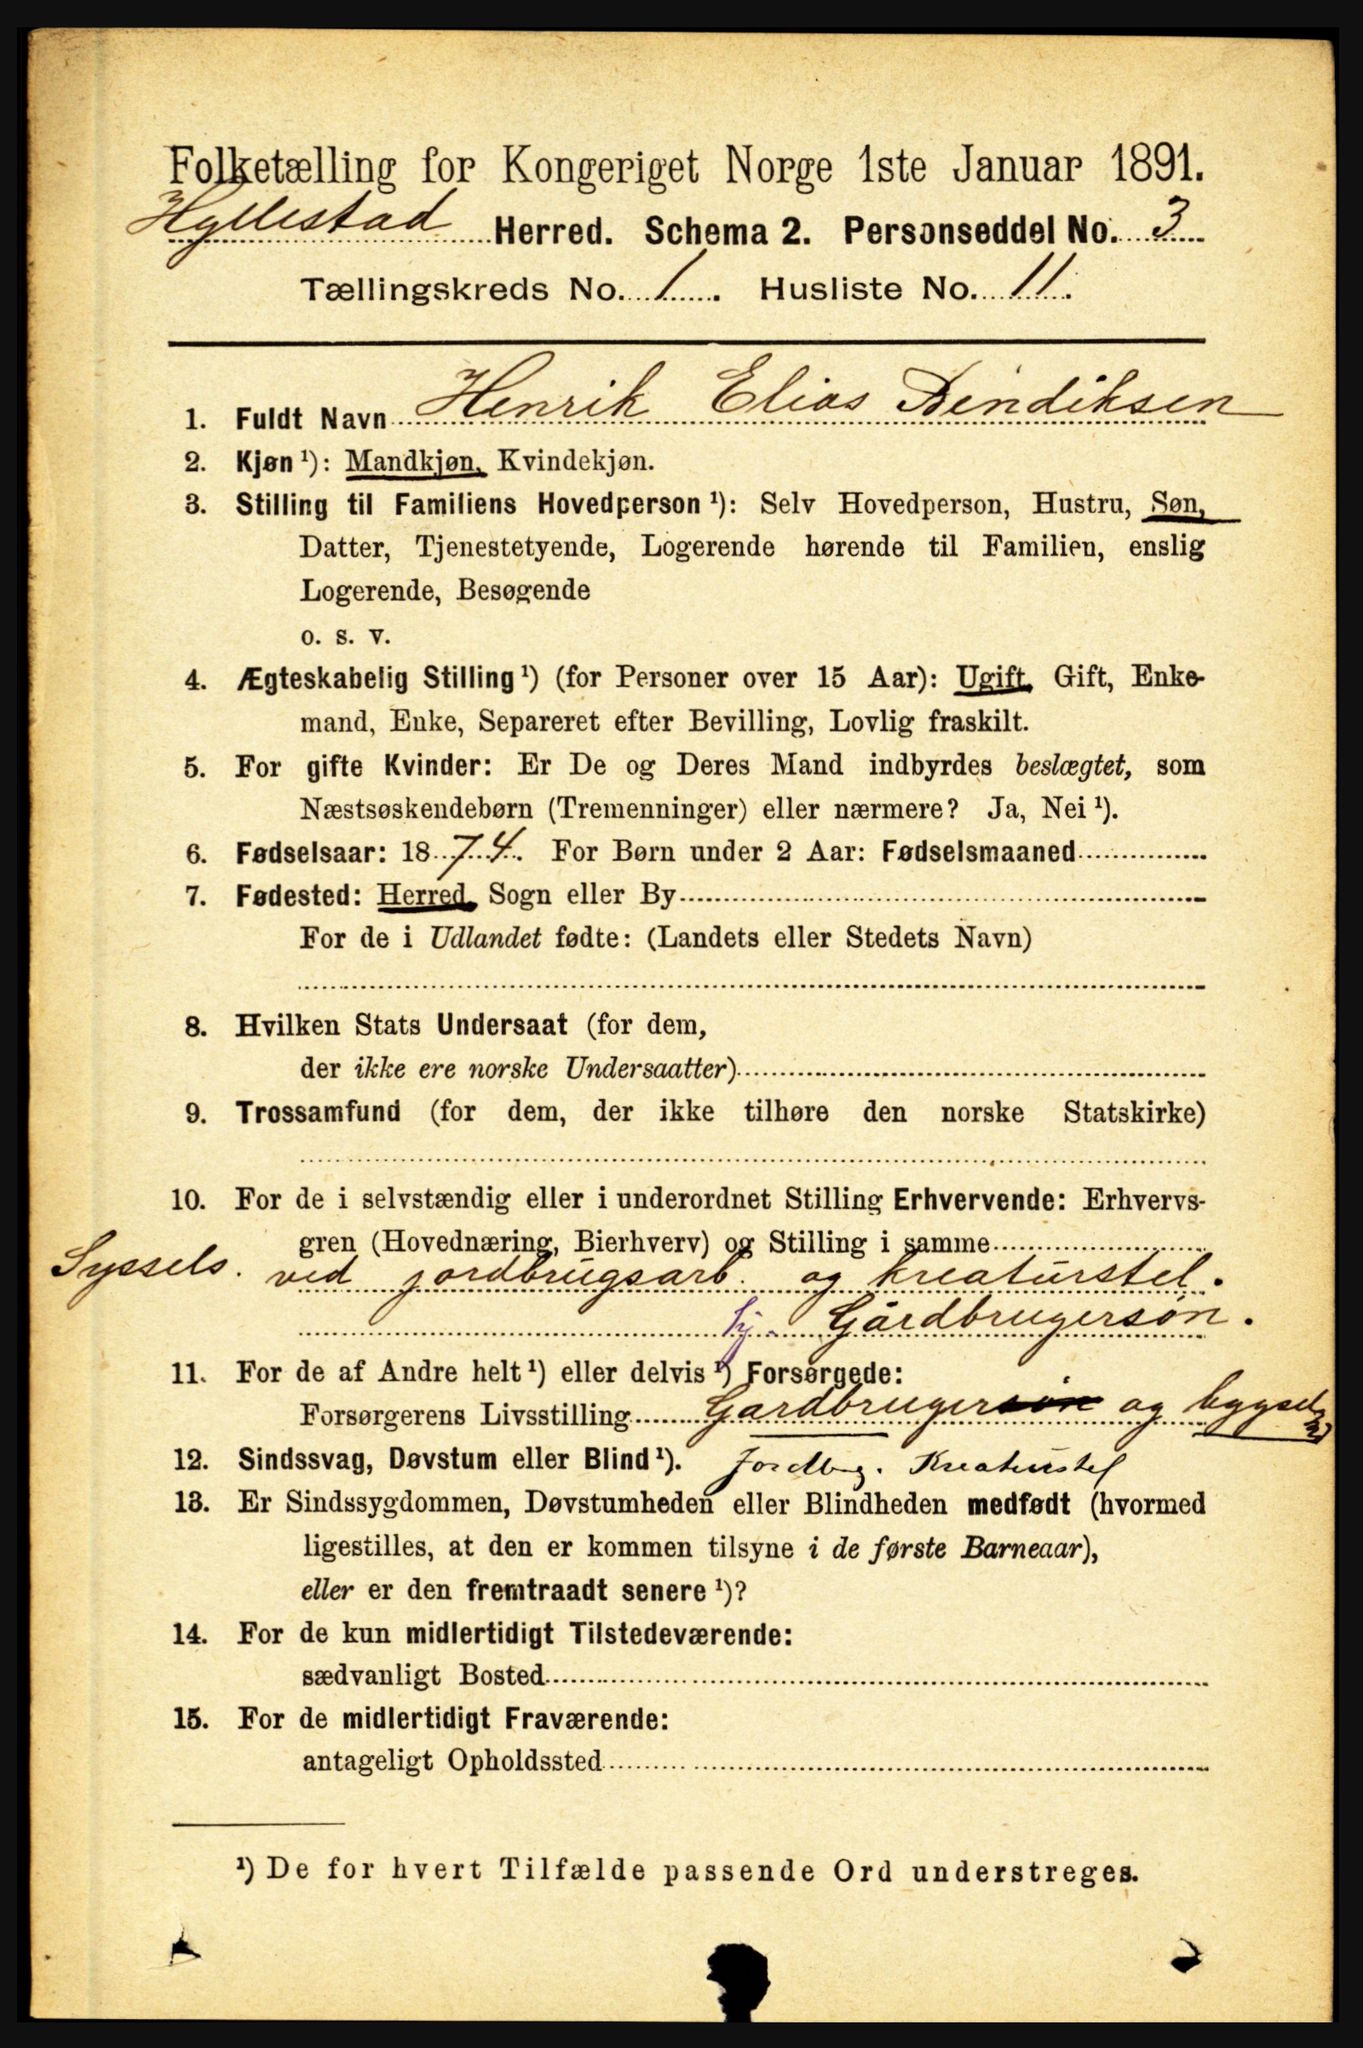 Folketælling for Kongeriget Norge 1ste Januar 1891.
Hyllestad Herred. Schema 2. Personseddel No. 3
Tællingskreds No. 1. Husliste No. 11.
1. Fuldt Navn Henrik Elias Bendiksen
2. Kjøn ¹): Mandkjøn, Kvindekjøn.
3. Stilling til Familiens Hovedperson ¹): Selv Hovedperson, Hustru, Søn,
Datter, Tjenestetyende, Logerende hørende til Familien, enslig
Logerende, Besøgende
o. s. v.
4. Ægteskabelig Stilling ¹) (for Personer over 15 Aar): Ugift, Gift, Enke-
mand, Enke, Separeret efter Bevilling, Lovlig fraskilt.
5. For gifte Kvinder: Er De og Deres Mand indbyrdes beslægtet, som
Næstsøskendebørn (Tremenninger) eller nærmere? Ja, Nei ¹).
6. Fødselsaar: 1874. For Børn under 2 Aar: Fødselsmaaned
7. Fødested: Herred, Sogn eller By
For de i Udlandet fødte: (Landets eller Stedets Navn)
8. Hvilken Stats Undersaat (for dem,
der ikke ere norske Undersaatter)
9. Trossamfund (for dem, der ikke tilhøre den norske Statskirke)
10. For de i selvstændig eller i underordnet Stilling Erhvervende: Erhvervs-
gren (Hovednæring, Bierhverv) og Stilling i samme
Syssels. ved jordbrugsarb. og kreaturstel.
hj. Gårdbrugersøn.
11. For de af Andre helt ¹) eller delvis ¹) Forsørgede:
Forsørgerens Livsstilling Gardbrugersøn og
12. Sindssvag, Døvstum eller Blind ¹). Jordbrug. Kreaturstel
13. Er Sindssygdommen, Døvstumheden eller Blindheden medfødt (hvormed
ligestilles, at den er kommen tilsyne i de første Barneaar),
eller er den fremtraadt senere ¹)?
14. For de kun midlertidigt Tilstedeværende:
sædvanligt Bosted
15. For de midlertidigt Fraværende:
antageligt Opholdssted
¹) De for hvert Tilfælde passende Ord understreges.